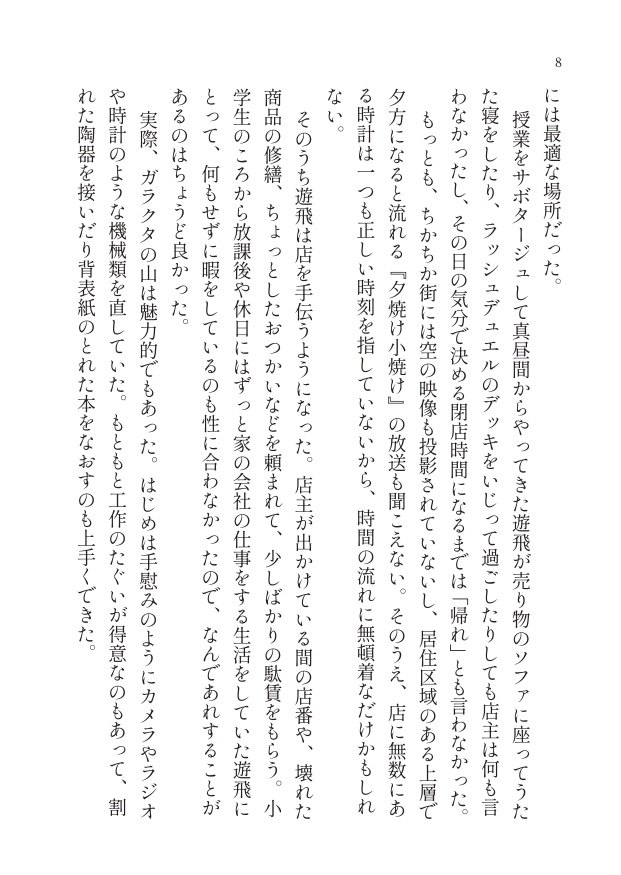 8
には最適な場所だった。
授業をサボタージュして真昼間からやってきた遊飛が売り物のソファに座ってうた
た寝をしたり、ラッシュデュエルのデッキをいじって過ごしたりしても店主は何も言
わなかったし、その日の気分で決める閉店時間になるまでは「帰れ」とも言わなかった。
もっとも、ちかちか街には空の映像も投影されていないし、居住区域のある上層で
夕方になると流れる『夕焼け小焼け』の放送も聞こえない。そのうえ、店に無数にあ
る時計は一つも正しい時刻を指していないから、時間の流れに無頓着なだけかもしれ
ない。
そのうち遊飛は店を手伝うようになった。店主が出かけている間の店番や、壊れた
商品の修繕、ちょっとしたおつかいなどを頼まれて、少しばかりの駄賃をもらう。小
学生のころから放課後や休日にはずっと家の会社の仕事をする生活をしていた遊飛に
とって、何もせずに暇をしているのも性に合わなかったので、なんであれすることが
あるのはちょうど良かった。
実際、ガラクタの山は魅力的でもあった。はじめは手慰みのようにカメラやラジオ
や時計のような機械類を直していた。もともと工作のたぐいが得意なのもあって、割
れた陶器を接いだり背表紙のとれた本をなおすのも上手くできた。